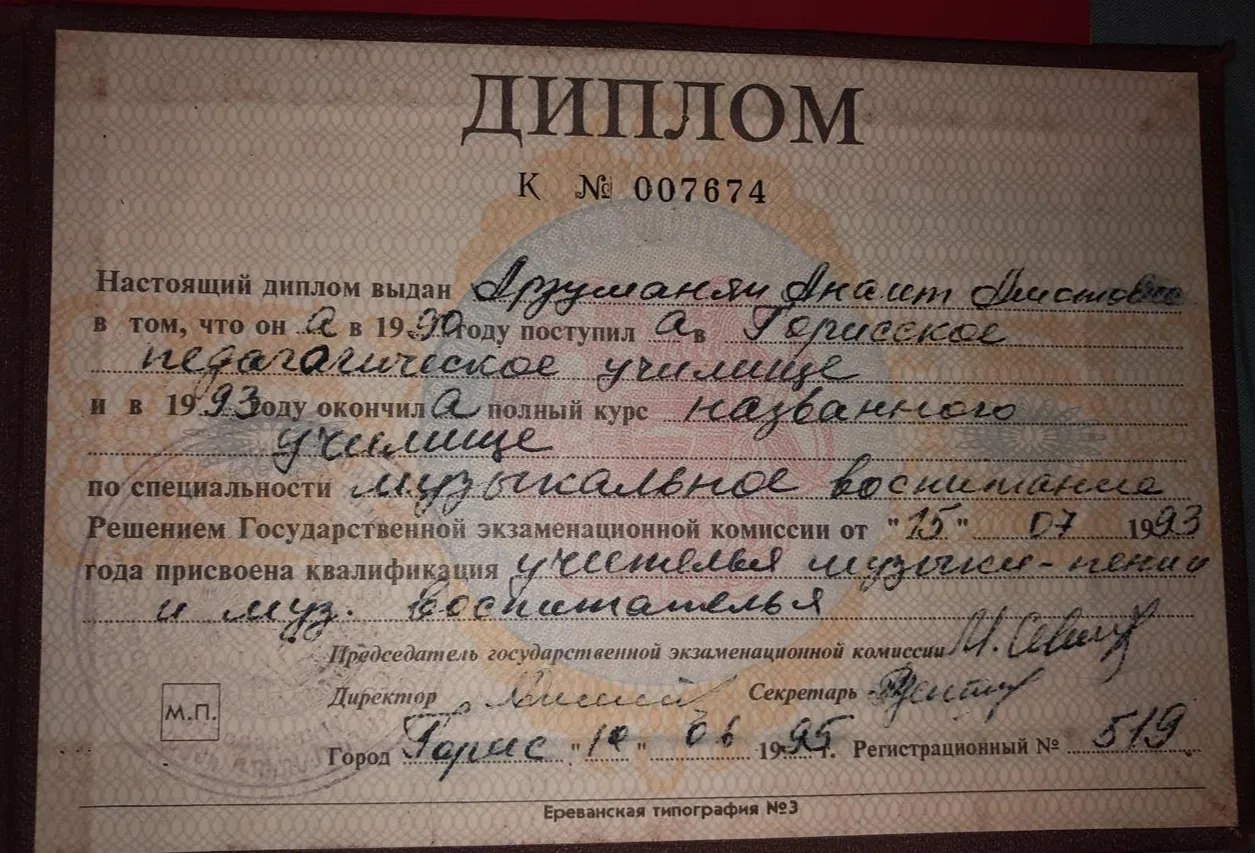 ДИПЛОМ
К № 007674
Настоящий диплом выдан Арзуманян Анаит
в том, что он а в 1990 году поступил а в Горисское
педагагическое училище
и в 1993 году окончил а полный курс названного
училище
по специальности музыкальное воспитание
Решением Государственной экзаменационной комиссии от "15" 07 1993
года присвоена квалификация учителья музыки-пении
и муз. воспитателья
Председатель государственной экзаменационной комиссии
Директор Секретарь
Город Горис " " 06 1995 г. Регистрационный № 519
М.П.
Ереванская типография №3